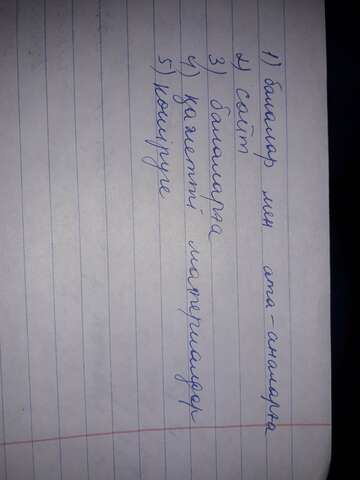 1) балалар мен ата-аналарға
2) сайт
3) балаларға
4) қажетті материалдар
5) көшіруге